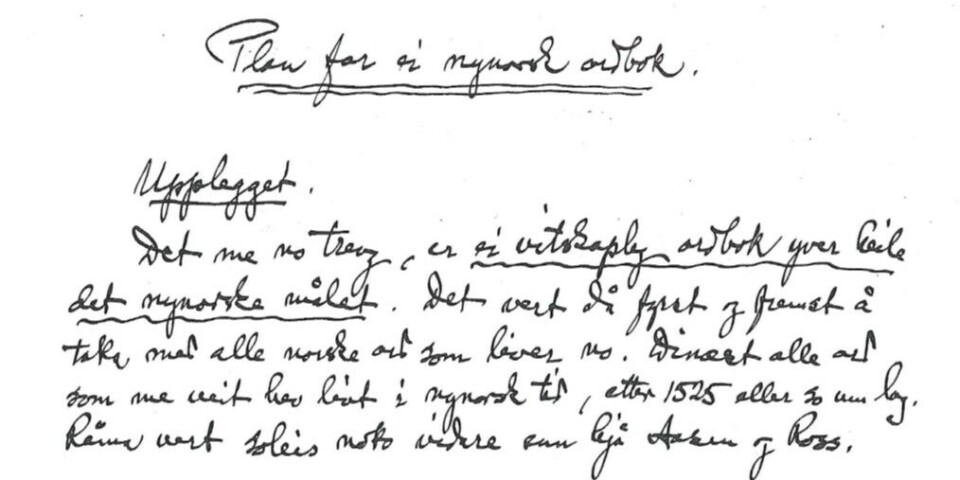 Plan for ei nynorsk ordbok.
Upplegget.
Det me no treng, er ei vitskapleg ordbok yver heile
det nynorske målet. Det vert då fyrst og fremst å
taka med alle norske ord som liver no. Dinæst alle ord
som me veit hev livt i nynorsk tid, etter 1525 eller so um lag.
Råma vert soleis noko vidare enn hjå Aasen og Ross.